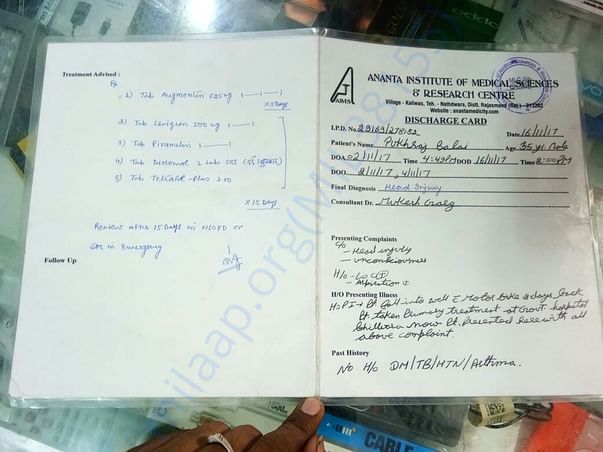 Treatment Advised :
Rx
1) Tab Augmentin 625 mg 1——1——1
X 5 Days
2) Tab Levigram 500 mg 1——1
3) Tab 1——1
4) Tab 2 tabs SOS
5) Tab - Plus
X 15 Days
Review after 15 Days in NSOPD or
SOS in Emergency
Follow Up
AIMS
ANANTA INSTITUTE OF MEDICAL SCIENCES
& RESEARCH CENTRE
Village - Kaliwas, Teh. - Nathdwara, Distt. Rajasmand (Raj) - 313202
Website : anantamedicity.com
DISCHARGE CARD
I.P.D. No. 29169/278182 Date 16/11/17
Patient's Name Pukhraj Balai Age 35 yr Male
DOA 02/11/17 Time 4:43PM DOD 16/11/17 Time 2:00PM
DOO 2/11/17, 4/11/17
Final Diagnosis Head Injury
Consultant Dr. Mukesh Garg
Presenting Complaints
C/o
- Head injury
- unconsciousness
H/O - LOC
H/O Presenting Illness
HOPI → Pt fall into well motor bike 2 days back
Pt. taken Primary treatment at Govt hospital
Bhilwara now Pt. Presented here with all
above complaint.
Past History
No H/o DM/TB/HTN/Asthma.
milaap.org
CABLE
oppo